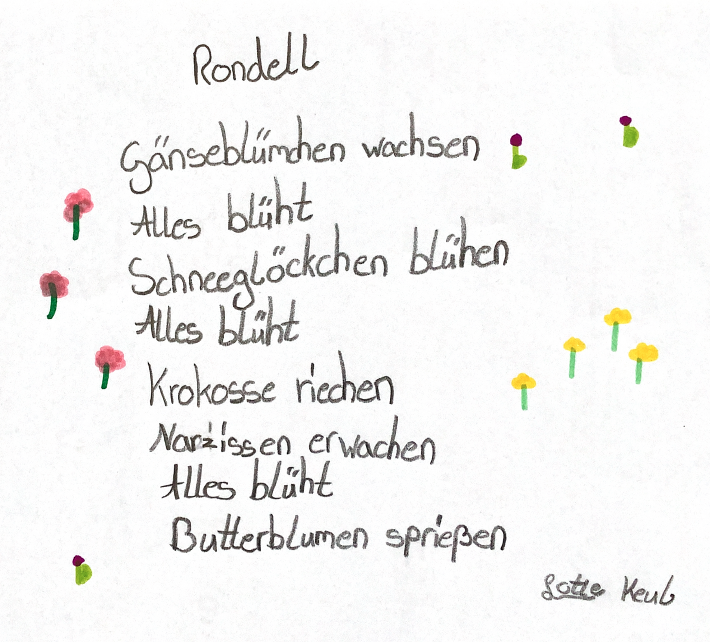 Rondell
Gänseblümchen wachsen
Alles blüht
Schneeglöckchen blühen
Alles blüht
Krokosse riechen
Narzissen erwachen
Alles blüht
Butterblumen sprießen
Lotte Keub